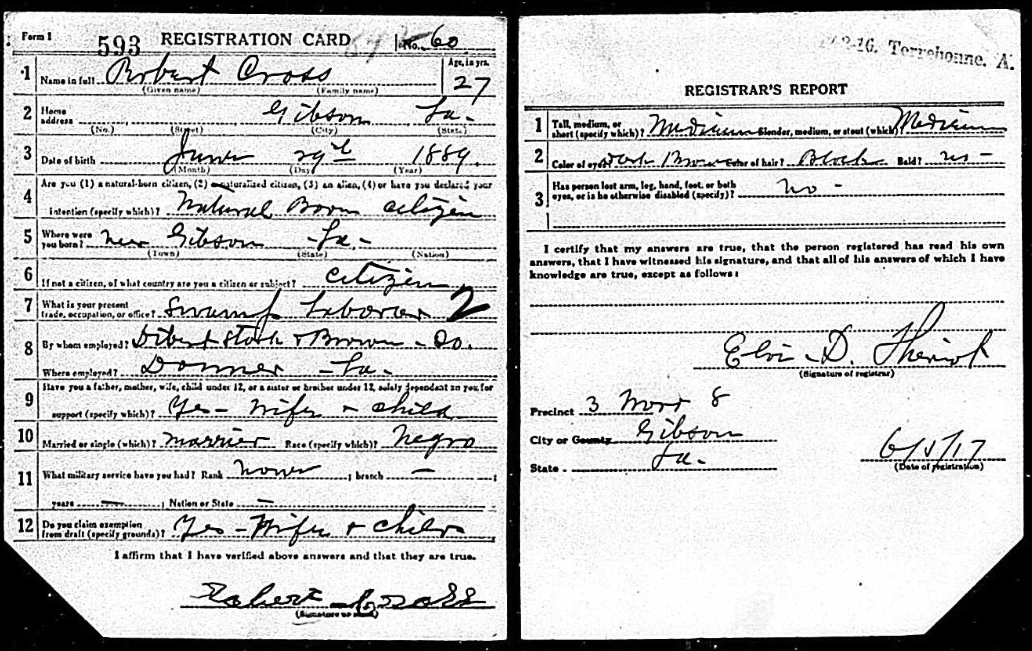 Form 1 593 REGISTRATION CARD No. 60
1 Name in full Robert Cross Age, in yrs. 27
(Given name) (Family name)
2 Home address Gibson La.
(No.) (Street) (City) (State)
3 Date of birth June 29th 1889.
(Month) (Day) (Year)
4 Are you (1) a natural-born citizen, (2) a naturalized citizen, (3) an alien, (4) or have you declared your
intention (specify which)? Natural Born citizen
5 Where were you born? near Gibson - La. -
(Town) (State) (Nation)
6 If not a citizen, of what country are you a citizen or subject? citizen
7 What is your present trade, occupation, or office? Swamp Laborer 2
8 By whom employed? Dibert Stark & Brown - Co.
Where employed? Donner - La -
9 Have you a father, mother, wife, child under 12, or a sister or brother under 12, solely dependent on you for
support (specify which)? Yes - Wife + child
10 Married or single (which)? married Race (specify which)? Negro
11 What military service have you had? Rank none ; branch — ;
years — ; Nation or State —
12 Do you claim exemption from draft (specify grounds)? Yes - Wife + child
I affirm that I have verified above answers and that they are true.
Robert Cross
(Signature or mark)
Terrebonne. A.
REGISTRAR'S REPORT
1 Tall, medium, or short (specify which)? Medium Slender, medium, or stout (which)? Medium
2 Color of eyes? Dark Brown Color of hair? Black Bald? no -
3 Has person lost arm, leg, hand, foot, or both eyes, or is he otherwise disabled (specify)? no -
I certify that my answers are true, that the person registered has read his own
answers, that I have witnessed his signature, and that all of his answers of which I have
knowledge are true, except as follows:
D. Theriot
(Signature of registrar)
Precinct 3 Ward 8
City or County Gibson
State - La -
6/5/17
(Date of registration)